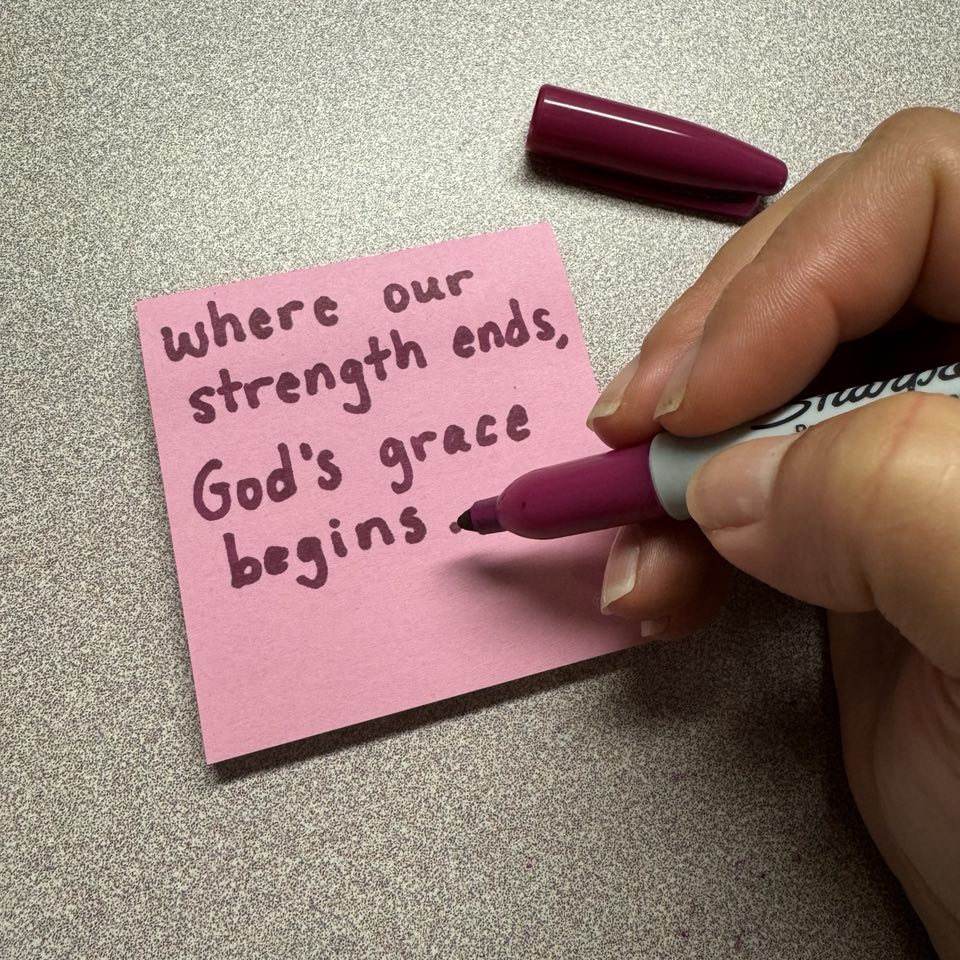 where our
strength ends,
God's grace
begins.
Sharpie